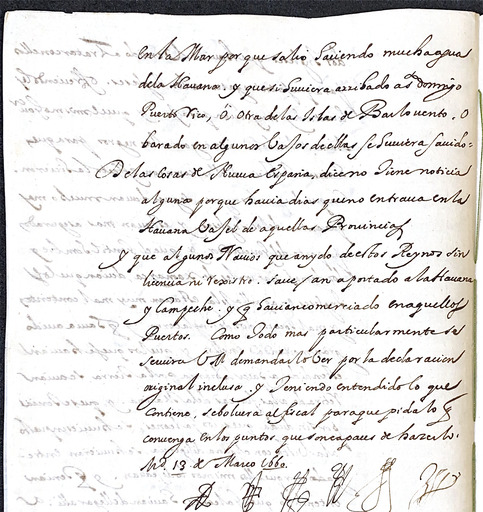 en la Mar por que salio haciendo mucha agua
de la Havana. y que si huviera arribado a S Domingo
Puerto Rico, ô otra de las Islas de Barlovento. o
barado en algunos bajos de ellas se huviera savido.
De las cosas de Nueva España, dice no tiene noticia
alguna porque havia dias que no entrava en la
Havana bajel de aquellas Provincias
y que algunos Navios que an ydo de estos Reynos sin
licencia ni rexistro. save an aportado a la Havana
y Campeche. y q havian comerciado en aquellos
Puertos. Como todo mas particularmente se
servira VM demandar lo ver por la declaracion
original inclusa. y teniendo entendido lo que
contiene, se bolvera al fiscal para que pida lo q
convenga en los puntos que son capaces de hazerlo.
Md 13 de Março 1660.